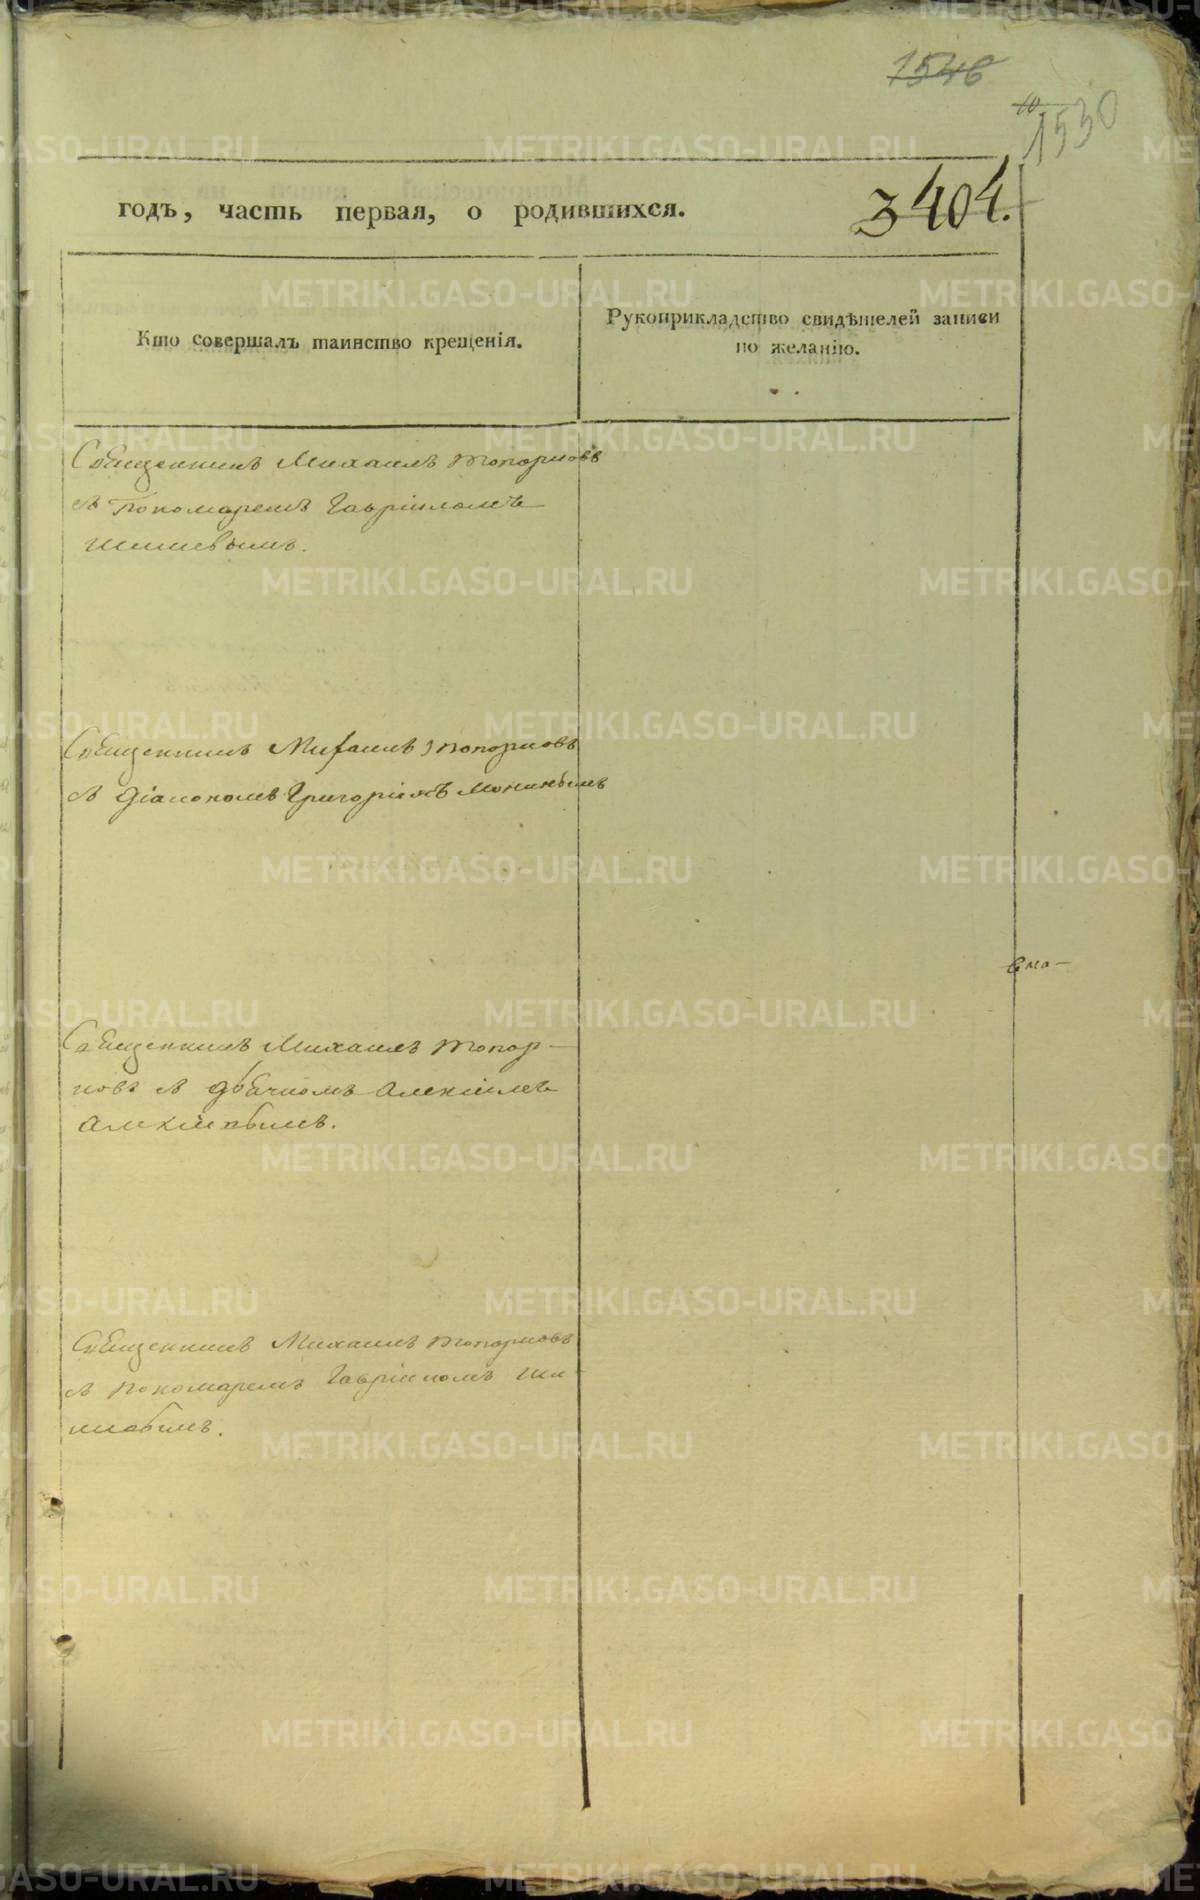 1546
10
1530
годъ, часть первая, о родившихся.
3404.
Кто совершалъ таинство крещенія.
Рукоприкладство свидѣтелей записи
по желанію.
Священникъ Михаилъ Топорковъ
съ Пономаремъ Гавріиломъ
Шишевымъ.
Священникъ Михаилъ Топорковъ
съ Діакономъ Григоріемъ
Священникъ Михаилъ Топор-
ковъ съ дьячкомъ Алексіемъ
Священникъ Михаилъ Топорковъ
съ пономаремъ Гавріиломъ Ши-
шевымъ.
METRIKI.GASO-URAL.RU